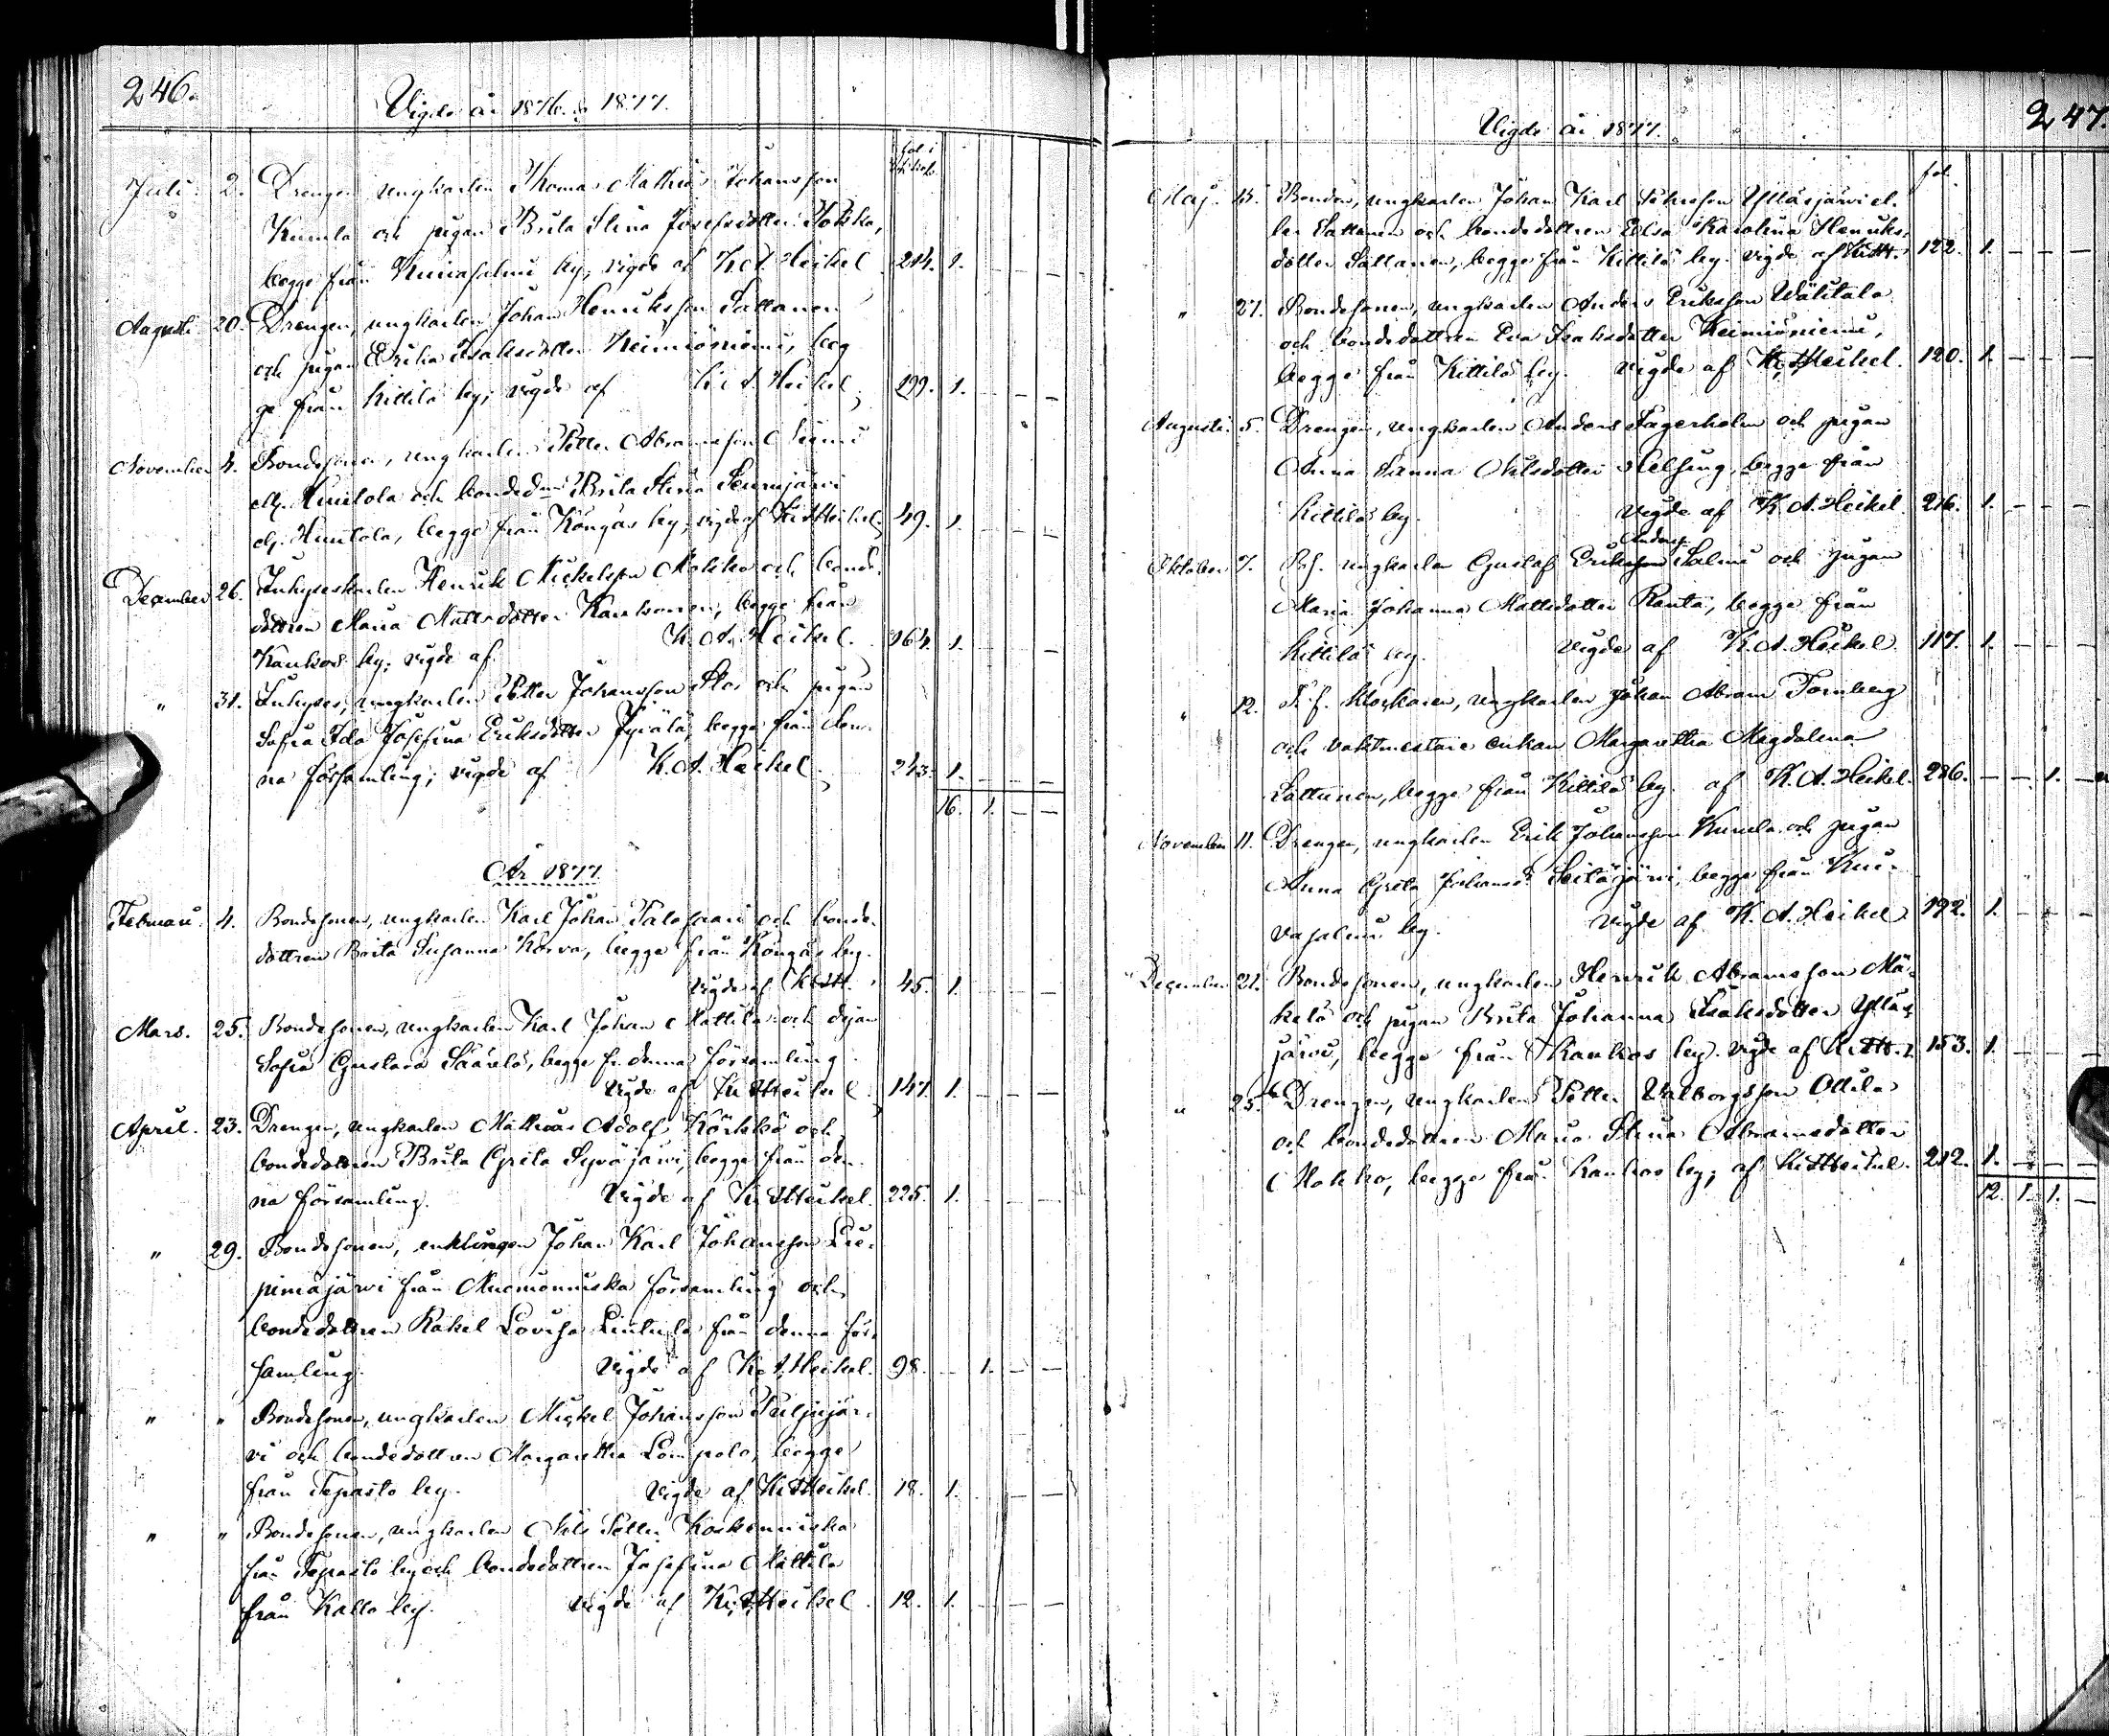 246.
Vigde år 1876. & 1877.
fol. i
Juli. 2. Drengen ungkarlen Thomas Mathias Johansson
Kumla och pigan Brita Stina Josefsdotter
begge från Kuivasalmi by; vigde af K. A. Heikel 214. 1. — — —
Augusti 20. Drengen, ungkarlen Johan Henriksson Sattanen
och pigan Erika Isaksdotter Keimiöniemi, beg
ge från Kittilä by; vigde af K. A. Heikel; 199. 1. — — —
November 4. Bondesonen, ungkarlen Petter Abramsson
elr. Huntola och bonded. Brita Stina Seurujärvi
elr. Huntola, begge från Köngäs by; vigde af K. A. Heikel; 49. 1. — — —
December 26. Inhyseskarlen Henrik Mickelsson Mokko och bonde-
dottren Maria Mattsdotter Kaukonen, begge från
Kaukos by; vigde af K. A. Heikel. 164. 1. — — —
" 31. Inhyses, ungkarlen Petter Johansson och pigan
Sofia Ida Josefina Eriksdotter Jyrälä, begge från den-
na församling; vigde af K. A. Heikel; 243. 1. — — —
16. 1. — —
År 1877.
Februari. 4. Bondesonen, ungkarlen Karl Johan Talosaari och bonde-
dottren Brita Susanna Korva, begge från Köngäs by.
vigde af 45. 1. — — —
Mars. 25. Bondesonen, ungkarlen Karl Johan Mattila och dejan
Sofia Gustava Säärelä, begge fr. denna församling.
Vigde af K. A. Heikel. 147. 1. — — —
April. 23. Drengen, ungkarlen Mathias Adolf Körkkö och
bondedottren Brita Greta Syväjärvi, begge från den-
na församling. Vigde af K. A. Heikel. 225. 1. — — —
" 29. Bondesonen, enklingen Johan Karl Johansson Lie-
pimäjärvi från Muonioniska församling och
bondedottren Rakel Lovisa Lintula från denna för-
samling. Vigde af K. A. Heikel. 98. — 1. — —
" " Bondesonen, ungkarlen Mickel Johansson Puljujär-
vi och bondedottren Margaretha Lompolo, begge
från Tepasto by. Vigde af K. A. Heikel. 18. 1. — — —
" " Bondesonen, ungkarlen Nils Petter Koskenniska
från Tepasto by och bondedottren Josefina Mattila
från Kallo by. Vigde af K. A. Heikel. 12. 1. — — —
247.
Vigde år 1877.
fol.
Maj. 13. Bonden, ungkarlen Johan Karl Ylläsjärvi el-
ler Sattanen och bondedottren Elsa Karolina Henriks-
dotter Sattanen, begge från Kittilä by. Vigde af 122. 1. — — —
" 27. Bondesonen, ungkarlen Anders Eriksson Wälitalo
och bondedottren Eva Isaksdotter Keimiöniemi,
begge från Kittilä by. Vigde af K. A. Heikel. 120. 1. — — —
Augusti. 5. Drengen, ungkarlen Anders Fagerholm och pigan
Anna Sanna Nilsdotter Helsing, begge från
Kittilä by. Vigde af K. A. Heikel. 216. 1. — — —
Anderss.
Oktober 7. Bs. ungkarlen Gustaf Eriksson Salmi och pigan
Maria Johanna Mattsdotter Ranta, begge från
Kittilä by. Vigde af K. A. Heikel. 117. 1. — — —
" 12. T. f. klockaren, ungkarlen Johan Abram Fornberg
och vaktmestare enkan Margaretha Magdalena
Lattunen, begge från Kittilä by. af K. A. Heikel. 286. — — 1. —
November 11. Drengen, ungkarlen Erik Johansson Kumla och pigan
Anna Greta Johansd. Seitäjärvi, begge från Kui-
vasalmi by. Vigde af K. A. Heikel 192. 1. — — —
December 21. Bondesonen, ungkarlen Henrik Abramsson Mä-
kelä och pigan Brita Johanna Isaksdotter Ylläs-
järvi, begge från Kaukos by. Vigde af 153. 1. — — —
" 25. Drengen, ungkarlen Petter Valborgsson Ollila
och bondedottren Maria Stina Abramsdotter
Mokko, begge från Kaukos by; af K. A. Heikel. 212. 1. — — —
12. 1. 1. —